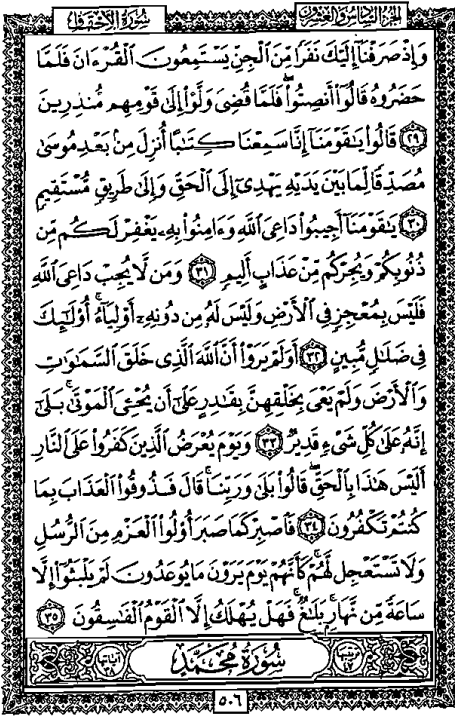 سُورَةُ الأَحْقَافِ
الجُزْءُ السَّادِسُ وَالعِشْرُونَ
وَإِذْ صَرَفْنَآ إِلَيْكَ نَفَرًا مِّنَ ٱلْجِنِّ يَسْتَمِعُونَ ٱلْقُرْءَانَ فَلَمَّا
حَضَرُوهُ قَالُوٓا۟ أَنصِتُوا۟ ۖ فَلَمَّا قُضِىَ وَلَّوْا۟ إِلَىٰ قَوْمِهِم مُّنذِرِينَ
٢٩ قَالُوا۟ يَٰقَوْمَنَآ إِنَّا سَمِعْنَا كِتَٰبًا أُنزِلَ مِنۢ بَعْدِ مُوسَىٰ
مُصَدِّقًا لِّمَا بَيْنَ يَدَيْهِ يَهْدِىٓ إِلَى ٱلْحَقِّ وَإِلَىٰ طَرِيقٍ مُّسْتَقِيمٍ
٣٠ يَٰقَوْمَنَآ أَجِيبُوا۟ دَاعِىَ ٱللَّهِ وَءَامِنُوا۟ بِهِۦ يَغْفِرْ لَكُم مِّن
ذُنُوبِكُمْ وَيُجِرْكُم مِّنْ عَذَابٍ أَلِيمٍ ٣١ وَمَن لَّا يُجِبْ دَاعِىَ ٱللَّهِ
فَلَيْسَ بِمُعْجِزٍ فِى ٱلْأَرْضِ وَلَيْسَ لَهُۥ مِن دُونِهِۦٓ أَوْلِيَآءُ ۚ أُو۟لَٰٓئِكَ
فِى ضَلَٰلٍ مُّبِينٍ ٣٢ أَوَلَمْ يَرَوْا۟ أَنَّ ٱللَّهَ ٱلَّذِى خَلَقَ ٱلسَّمَٰوَٰتِ
وَٱلْأَرْضَ وَلَمْ يَعْىَ بِخَلْقِهِنَّ بِقَٰدِرٍ عَلَىٰٓ أَن يُحْۦِىَ ٱلْمَوْتَىٰ ۚ بَلَىٰٓ
إِنَّهُۥ عَلَىٰ كُلِّ شَىْءٍ قَدِيرٌ ٣٣ وَيَوْمَ يُعْرَضُ ٱلَّذِينَ كَفَرُوا۟ عَلَى ٱلنَّارِ
أَلَيْسَ هَٰذَا بِٱلْحَقِّ ۖ قَالُوا۟ بَلَىٰ وَرَبِّنَا ۚ قَالَ فَذُوقُوا۟ ٱلْعَذَابَ بِمَا
كُنتُمْ تَكْفُرُونَ ٣٤ فَٱصْبِرْ كَمَا صَبَرَ أُو۟لُوا۟ ٱلْعَزْمِ مِنَ ٱلرُّسُلِ
وَلَا تَسْتَعْجِل لَّهُمْ ۚ كَأَنَّهُمْ يَوْمَ يَرَوْنَ مَا يُوعَدُونَ لَمْ يَلْبَثُوٓا۟ إِلَّا
سَاعَةً مِّن نَّهَارٍۭ ۚ بَلَٰغٌ ۚ فَهَلْ يُهْلَكُ إِلَّا ٱلْقَوْمُ ٱلْفَٰسِقُونَ ٣٥
سُورَةُ مُحَمَّدٍ
٥٠٦